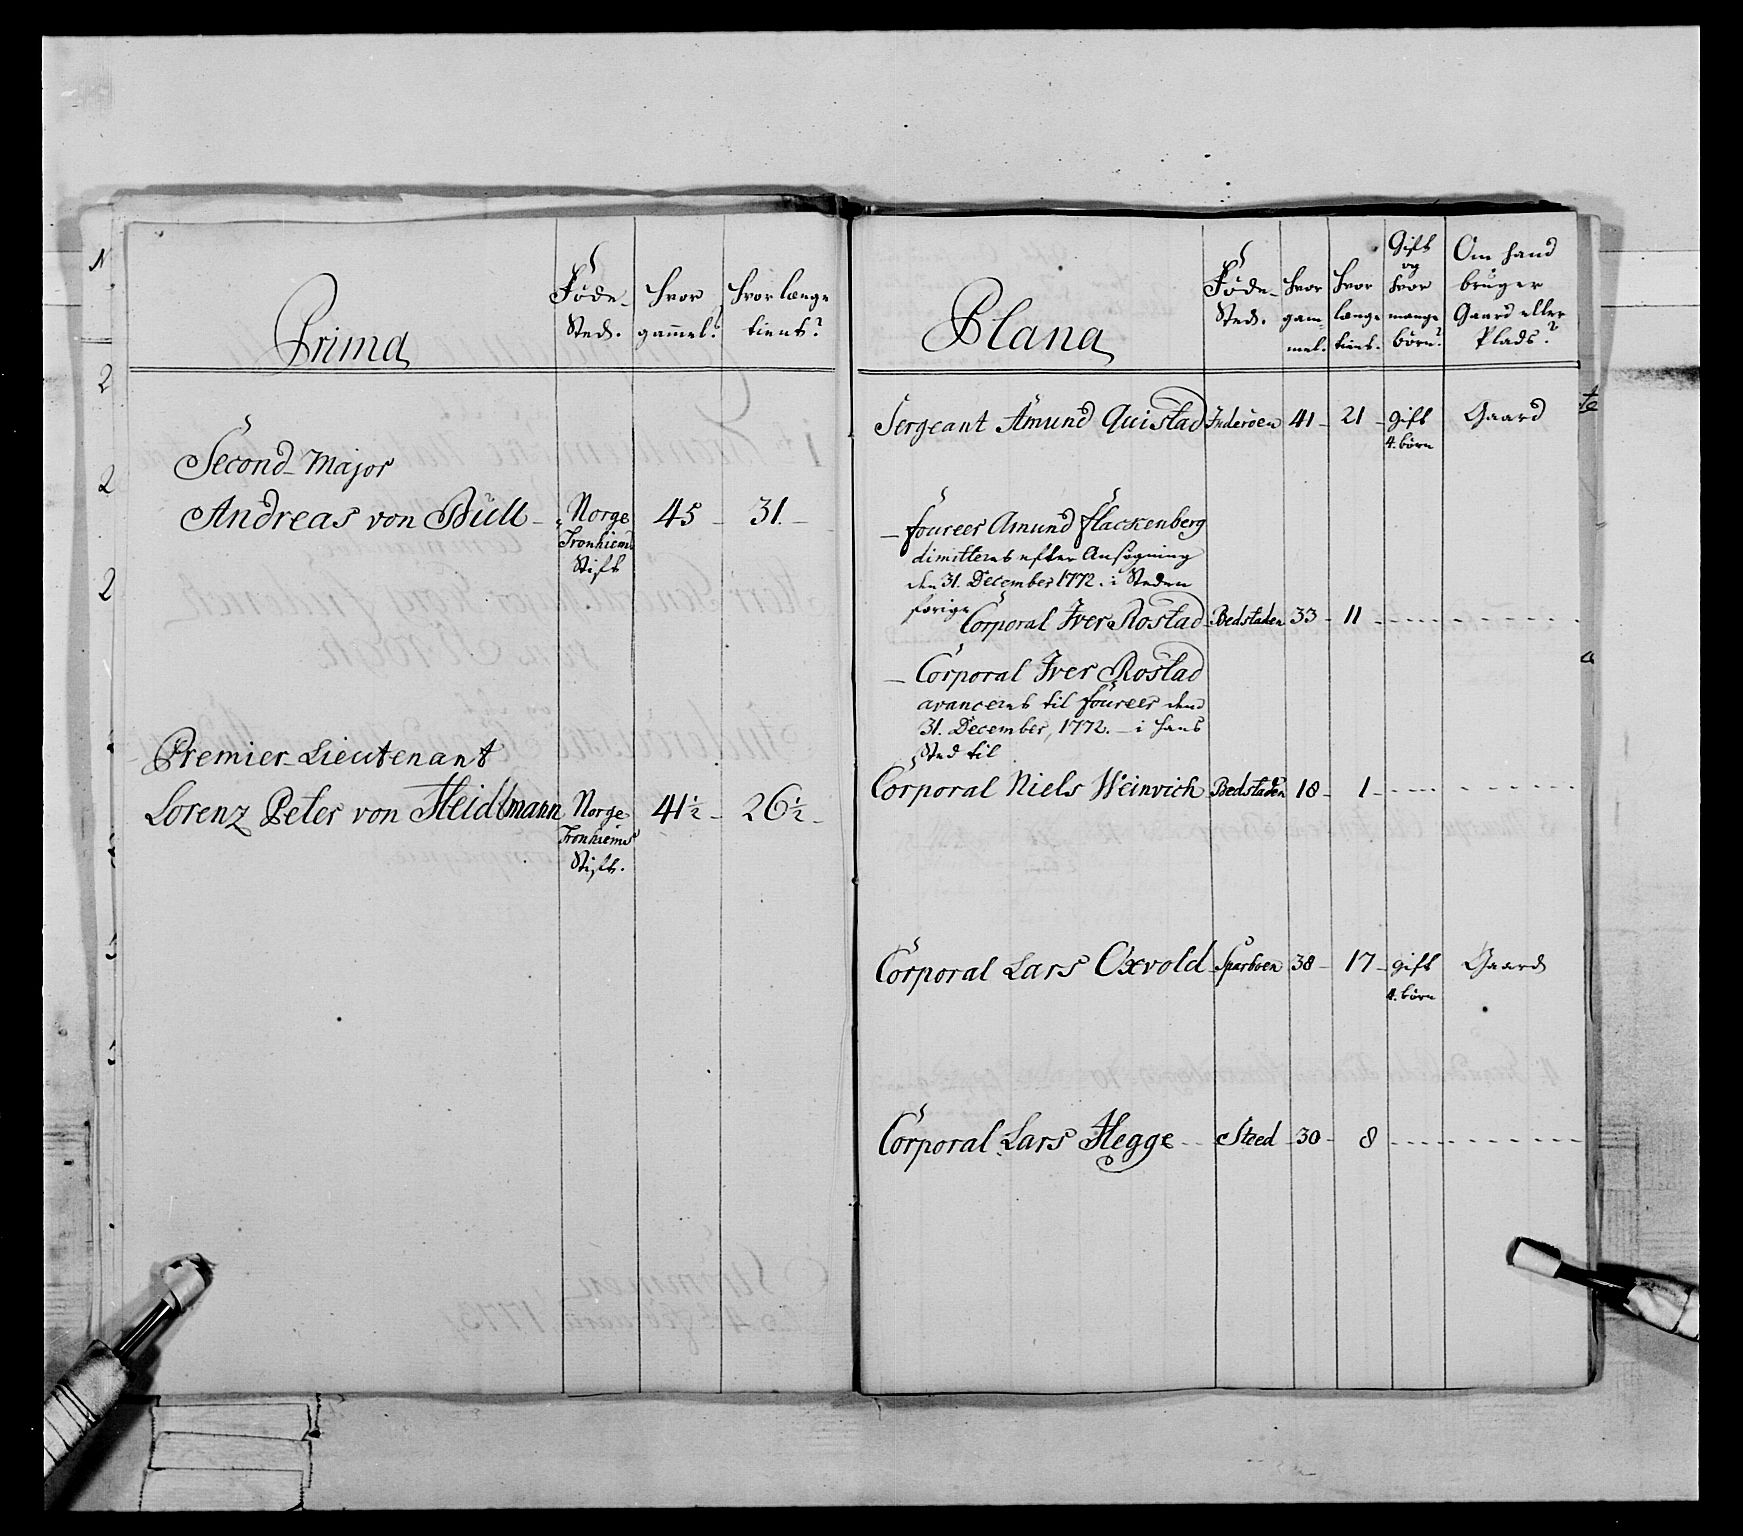 Prima
Føde-
Sted.
hvor
gammel?
hvor længe
tient?
Second-Major
Andreas von Büll - Norge 45 - 31. -
Tronhiems
Stift
Premier-Lieutenant
Lorenz Peter von Heidtmann Norge 41½ - 26½ -
Tronhiems
Stift.
Plana
Føde-
Sted.
hvor
gam-
mel.
hvor
længe
tient.
Gift
og
hvor
mange
børn?
Om hand
bruger
Gaard eller
Plads?
Sergeant Amund Quistad Inderöen 41 - 21 - gift Gaard
4. børn
- foureer Amund Flackenberg
dimitteret efter Ansøgning
den 31. December 1772. i Steden
forige
Corporal Iver Rostad Bedstaden 33 - 11 - - - -
- Corporal Iver Rostad
avanceret til foureer dend
31. December, 1772. - i hans
Sted til
Corporal Niels Weinrich Bedstaden 18 - 1 - - - -
Corporal Lars Oxvold Sparboen 38 - 17 - gift Gaard
4. børn
Corporal Lars Hegge - - Steed - 30 - 8 - - - -
N
2
2
2
te